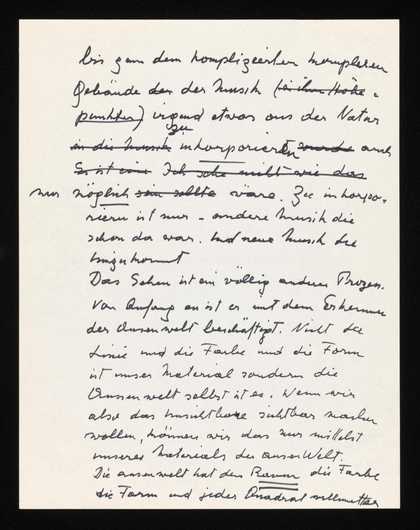 bis zum dem komplizierten komplexen
Gebäude der der Musik (bei ihren Höhe-
punkten) irgend etwas aus der Natur
zu
in die Musik inkorporieren wurde auch
Es ist eine Ich sehe nicht wie das
nur möglich sein sollte wäre. Zu inkorpo-
rieren ist nur - andere Musik die
schon da war. Und neue Musik die
hinzukommt
Das Sehen ist ein völlig anderer Prozess.
Von Anfang an ist er mit dem Erkennen
der Aussenwelt beschäftigt. Nicht die
Linie und die Farbe und die Form
ist unser Material sondern die
Aussenwelt selbst ist es. Wenn wir
also das unsichtbare sichtbar machen
wollen, können wir das nur mittelst
unseres Materials der aussenWelt.
Die aussenwelt hat den Raum die Farbe
die Form und jeder Quadrat